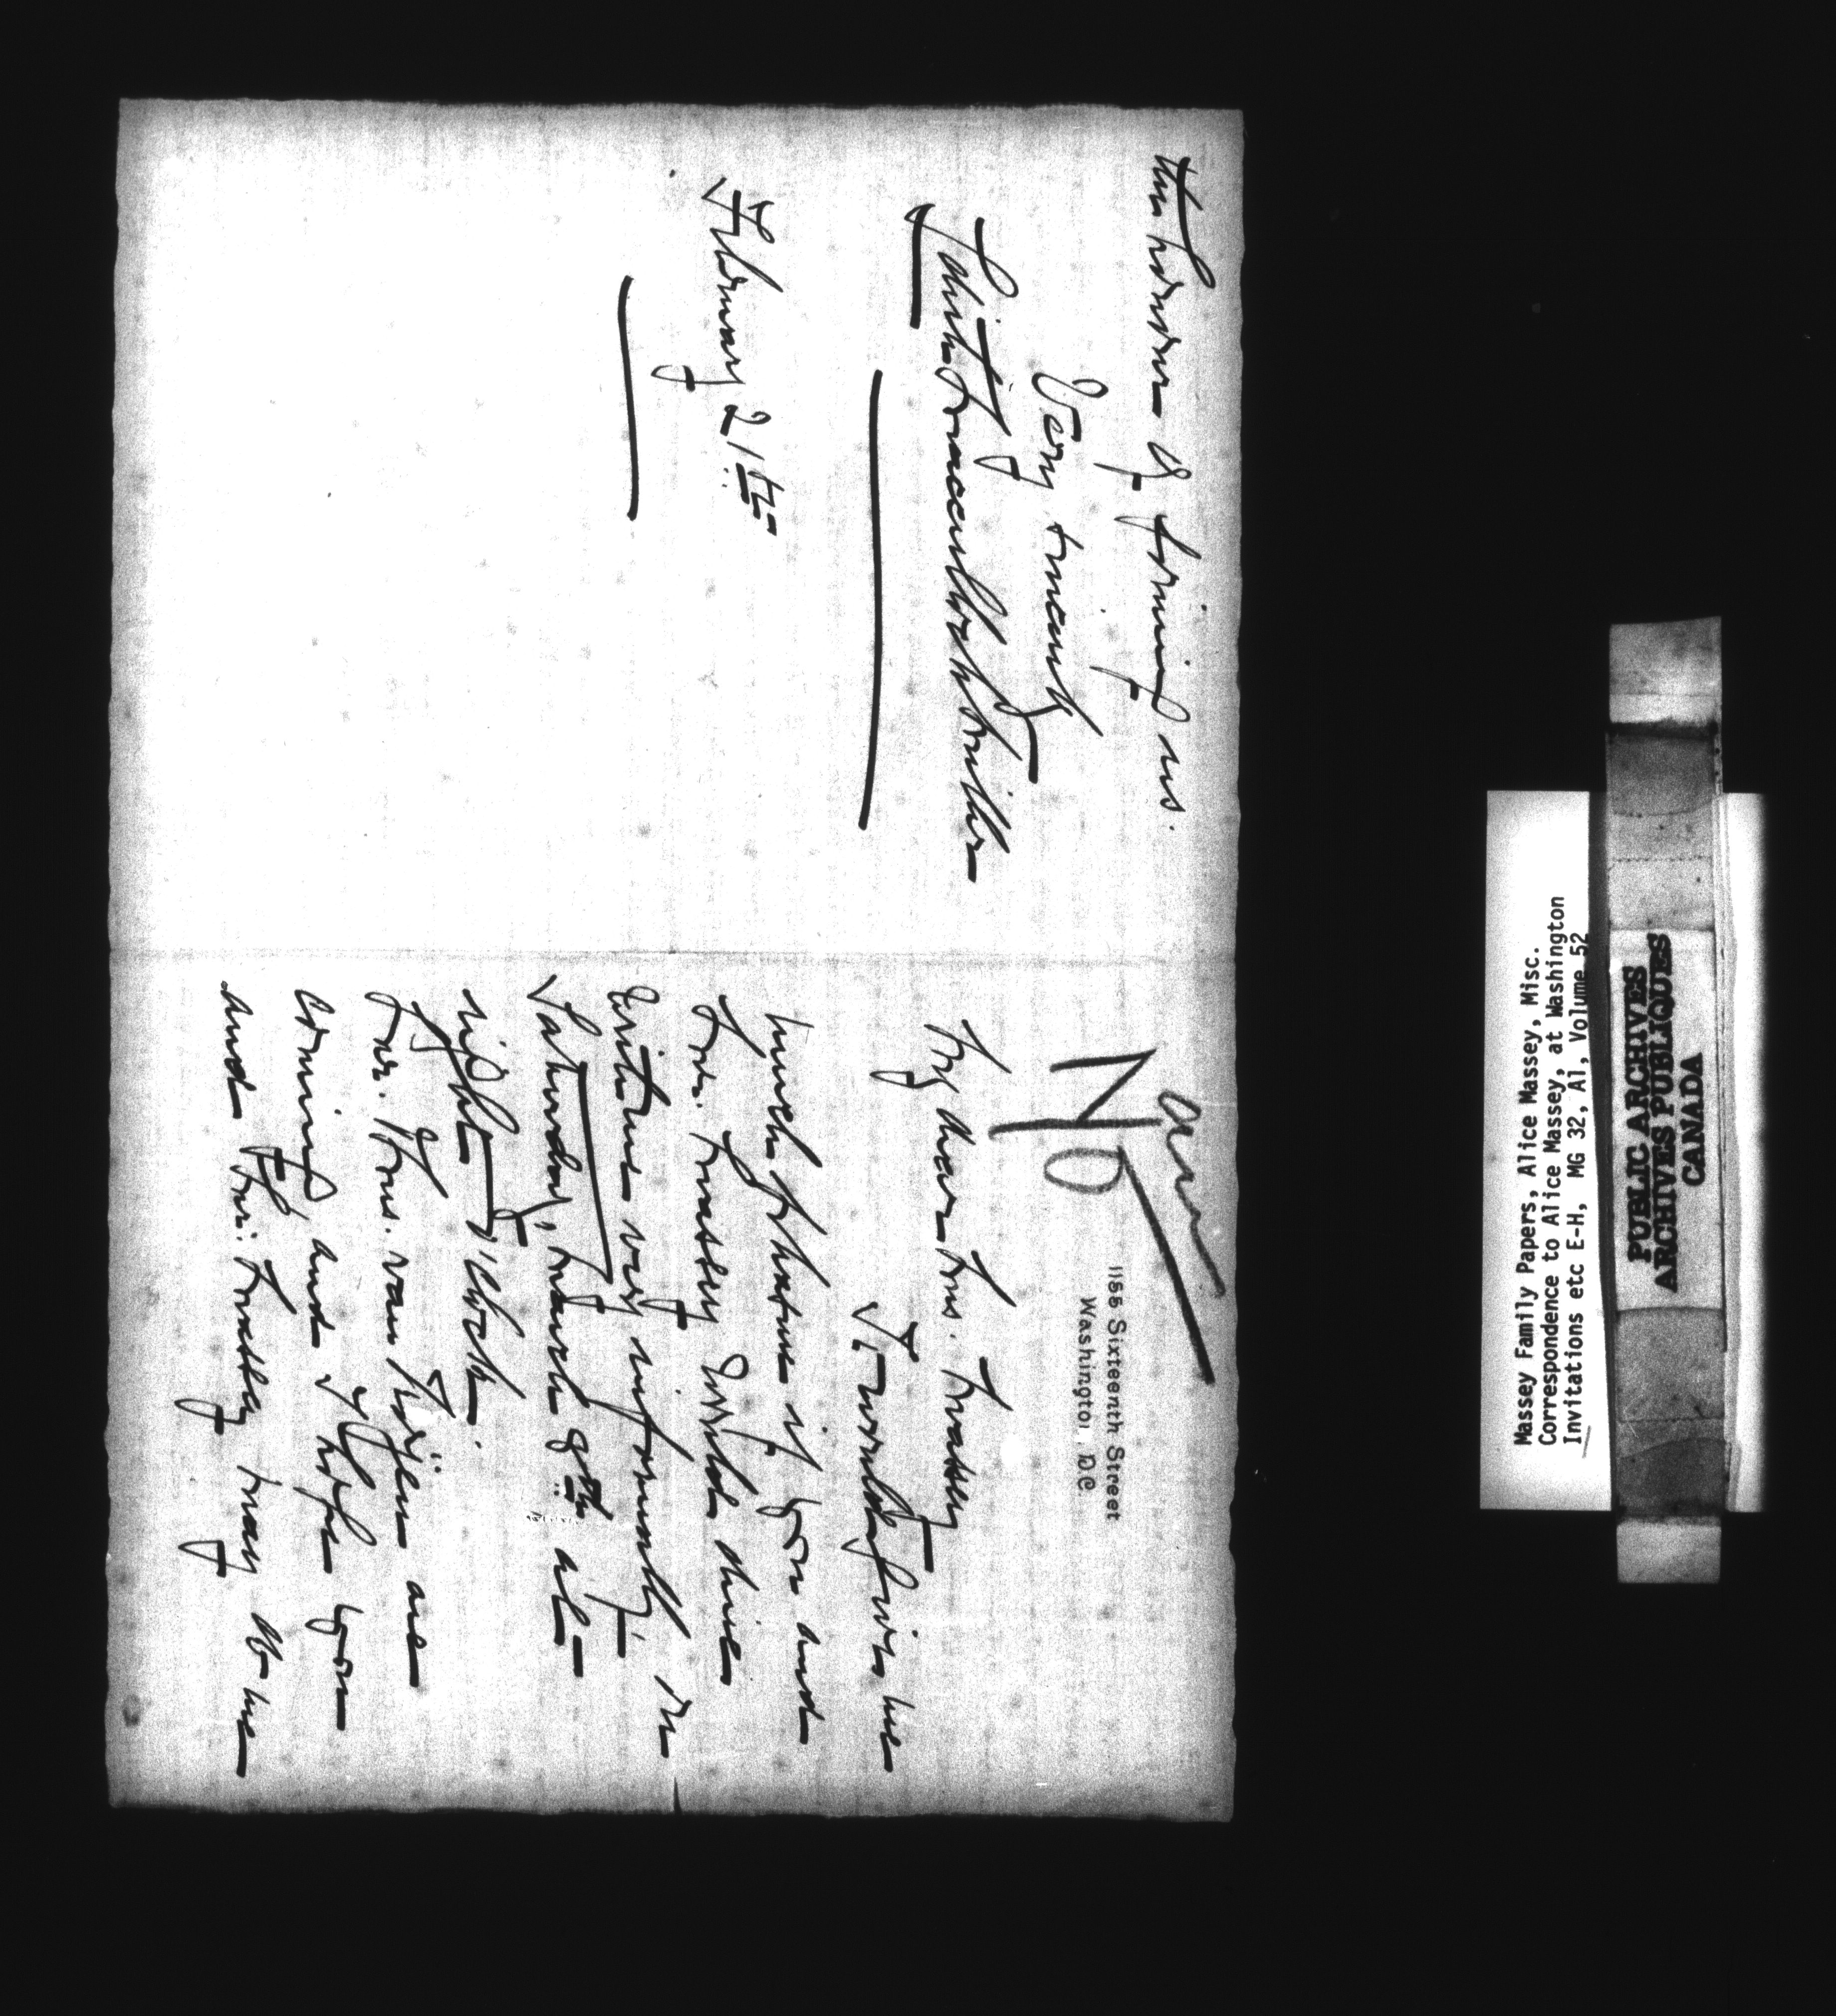 ans
No
1155 Sixteenth Street
Washington, D.C.
My dear Mrs. Massey
It would give me
much pleasure if you and
Mr. Massey would dine
with us very informally on
Saturday, March 9th at
eight o'clock.
Mr. Mrs. van Roijen are
coming, and I hope you
and Mr. Massey may do me
the honour of joining us.
Very sincerely
February 21st
Massey Family Papers, Alice Massey, Misc.
Correspondence to Alice Massey, at Washington
Invitations etc E-H, MG 32, A1, Volume 52
PUBLIC ARCHIVES
ARCHIVES PUBLIQUES
CANADA